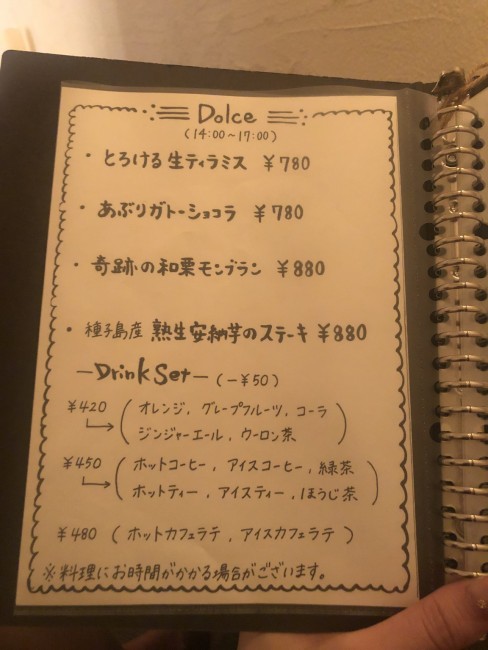 Dolce
(14:00~17:00)
・とろける生ティラミス ¥780
・あぶりガトーショコラ ¥780
・奇跡の和栗モンブラン ¥880
・種子島産 熟生安納芋のステーキ ¥880
ーDrink Setー(-¥50)
¥420 (オレンジ, グレープフルーツ, コーラ
ジンジャーエール, ウーロン茶)
¥450 (ホットコーヒー, アイスコーヒー, 緑茶
ホットティー, アイスティー, ほうじ茶)
¥480 (ホットカフェラテ, アイスカフェラテ)
※料理にお時間がかかる場合がございます。